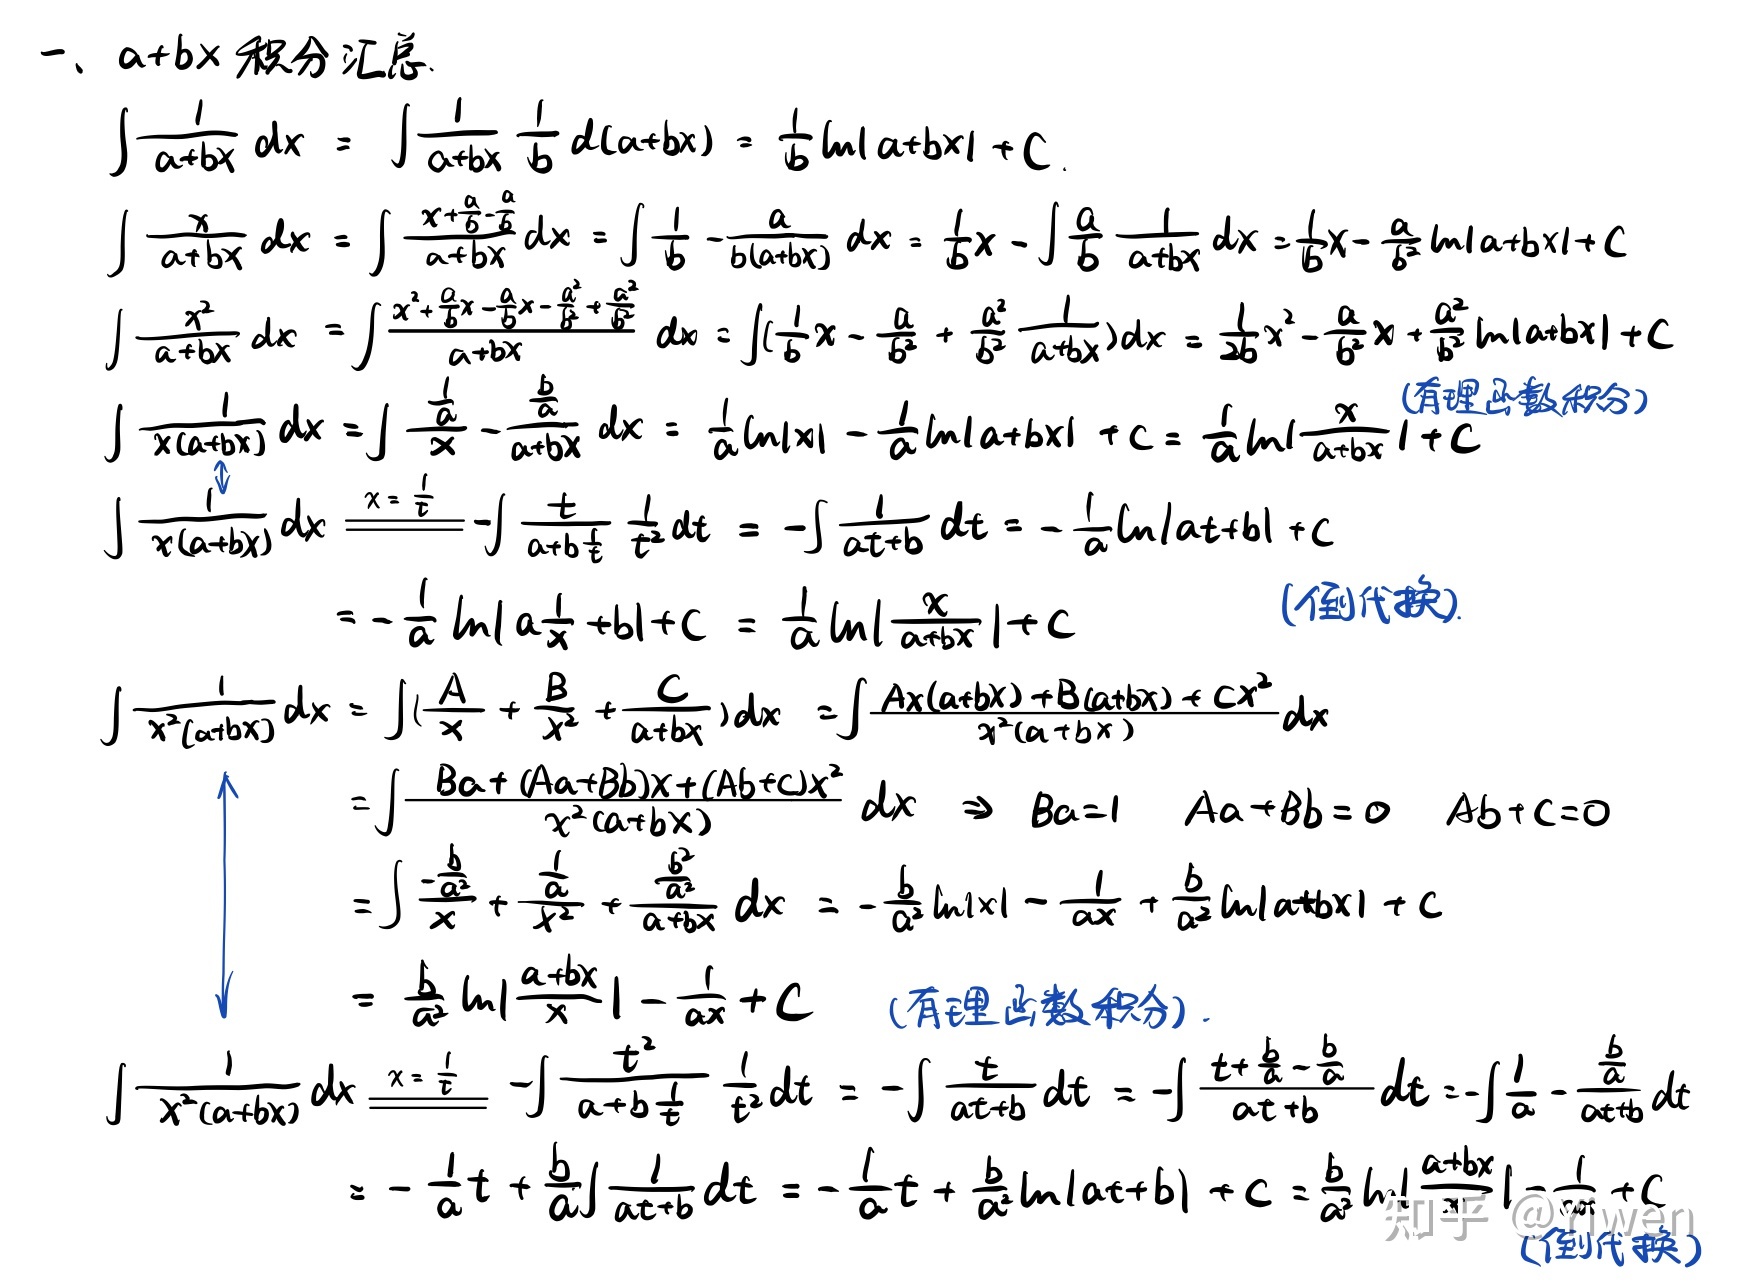 一、a+bx 积分汇总.
∫ 1/(a+bx) dx = ∫ 1/(a+bx) 1/b d(a+bx) = 1/b ln|a+bx| + C.
∫ x/(a+bx) dx = ∫ (x+a/b-a/b)/(a+bx) dx = ∫ 1/b - a/(b(a+bx)) dx = 1/b x - ∫ a/b 1/(a+bx) dx = 1/b x - a/b² ln|a+bx| + C
∫ x²/(a+bx) dx = ∫ (x²+a/b x-a/b x-a²/b²+a²/b²)/(a+bx) dx = ∫(1/b x - a/b² + a²/b² 1/(a+bx))dx = 1/(2b) x² - a/b² x + a²/b² ln|a+bx| + C
(有理函数积分)
∫ 1/(x(a+bx)) dx = ∫ (1/a)/x - (b/a)/(a+bx) dx = 1/a ln|x| - 1/a ln|a+bx| + C = 1/a ln|x/(a+bx)| + C
∫ 1/(x(a+bx)) dx x=1/t -∫ t/(a+b 1/t) 1/t² dt = -∫ 1/(at+b) dt = - 1/a ln|at+b| + C
= - 1/a ln|a 1/x + b| + C = 1/a ln|x/(a+bx)| + C (倒代换).
∫ 1/(x²(a+bx)) dx = ∫(A/x + B/x² + C/(a+bx))dx = ∫ (Ax(a+bx)+B(a+bx)+Cx²)/(x²(a+bx)) dx
= ∫ (Ba+(Aa+Bb)x+(Ab+C)x²)/(x²(a+bx)) dx ⇒ Ba=1 Aa+Bb=0 Ab+C=0
= ∫ (-b/a²)/x + (1/a)/x² + (b²/a²)/(a+bx) dx = - b/a² ln|x| - 1/(ax) + b/a² ln|a+bx| + C
= b/a² ln|(a+bx)/x| - 1/(ax) + C (有理函数积分).
∫ 1/(x²(a+bx)) dx x=1/t -∫ t²/(a+b 1/t) 1/t² dt = -∫ t/(at+b) dt = -∫ (t+b/a-b/a)/(at+b) dt = -∫ 1/a - (b/a)/(at+b) dt
= - 1/a t + b/a ∫ 1/(at+b) dt = - 1/a t + b/a² ln|at+b| + C = b/a² ln|(a+bx)/x| - 1/(ax) + C
知乎 @Yiwen
(倒代换)